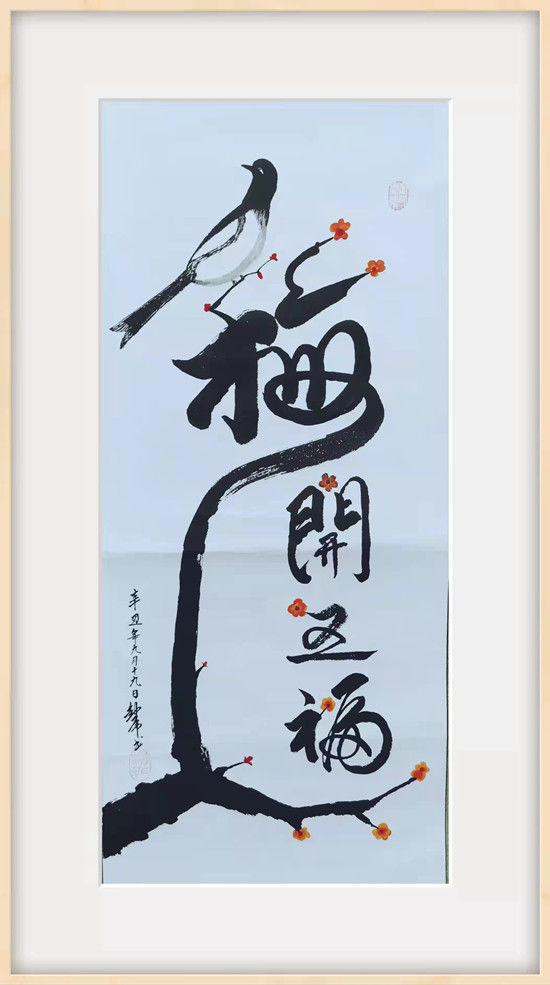 梅開五福
辛丑年九月十九日